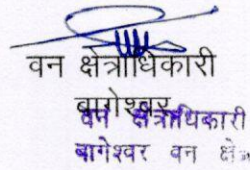 वन क्षेत्राधिकारी
बागेश्वर
वन क्षेत्राधिकारी
बागेश्वर वन क्षे